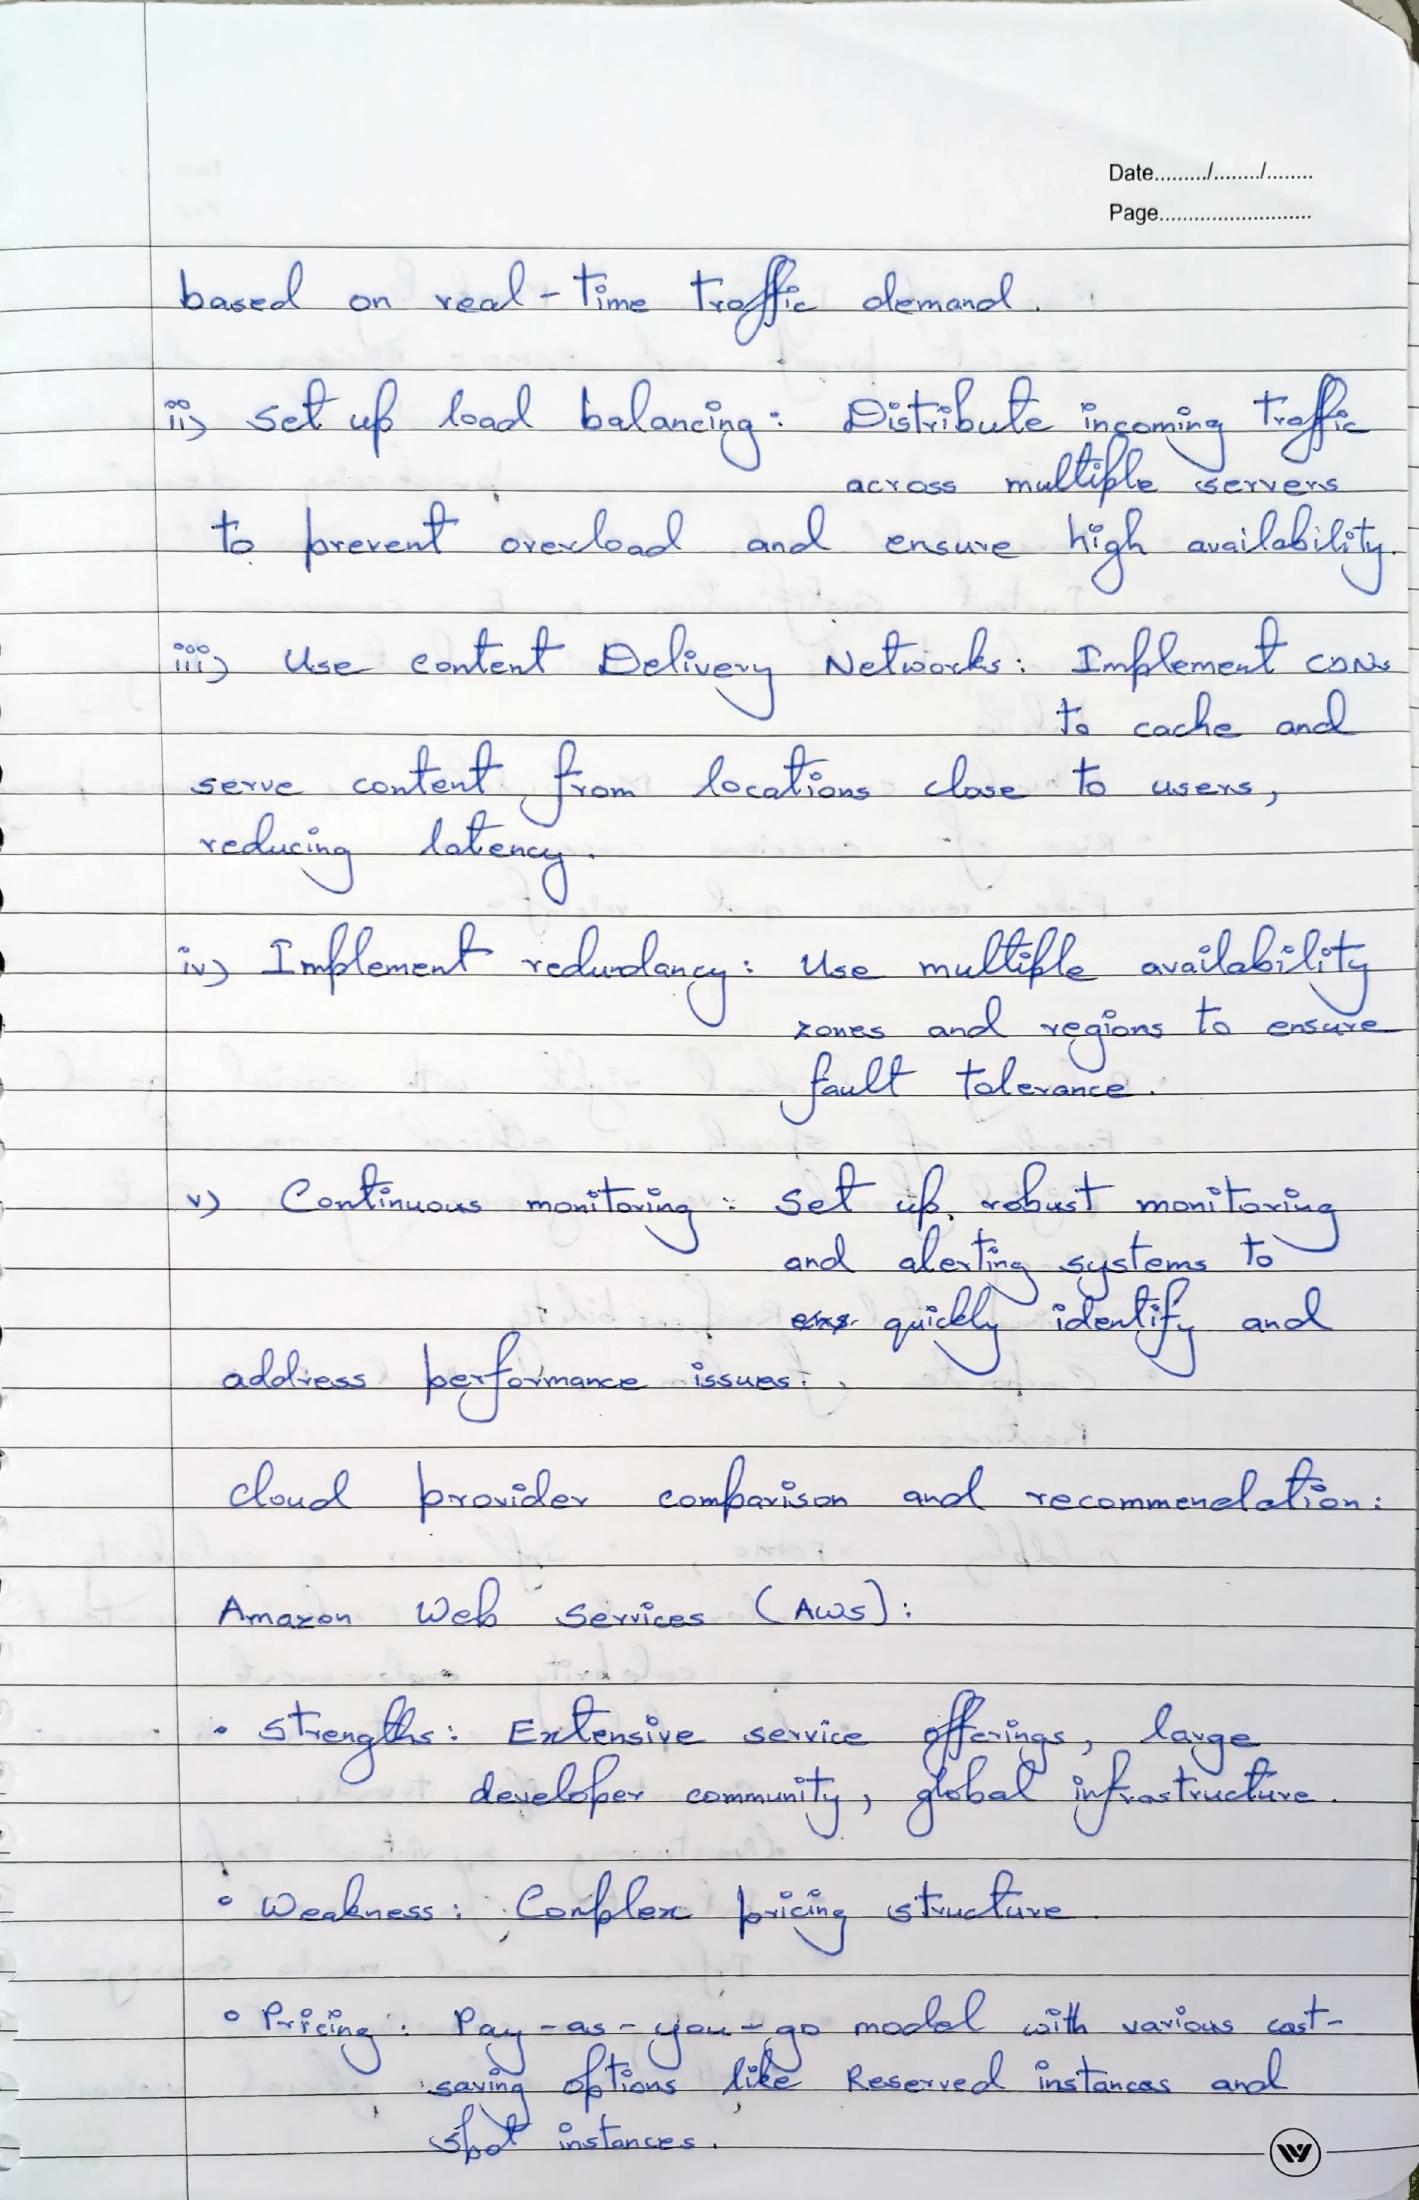 Date........./......../........
Page...........................
based on real-time traffic demand.
ii) Set up load balancing: Distribute incoming traffic
across multiple servers
to prevent overload and ensure high availability.
iii) Use content Delivery Networks: Implement CDNs
to cache and
serve content from locations close to users,
reducing latency.
iv) Implement redundancy: Use multiple availability
zones and regions to ensure
fault tolerance.
v) Continuous monitoring: Set up robust monitoring
and alerting systems to
quickly identify and
address performance issues.
cloud provider comparison and recommendation:
Amazon Web Services (AWS):
• Strengths: Extensive service offerings, large
developer community, global infrastructure.
• Weakness: Complex pricing structure.
• Pricing: Pay-as-you-go model with various cost-
saving options like Reserved instances and
spot instances.